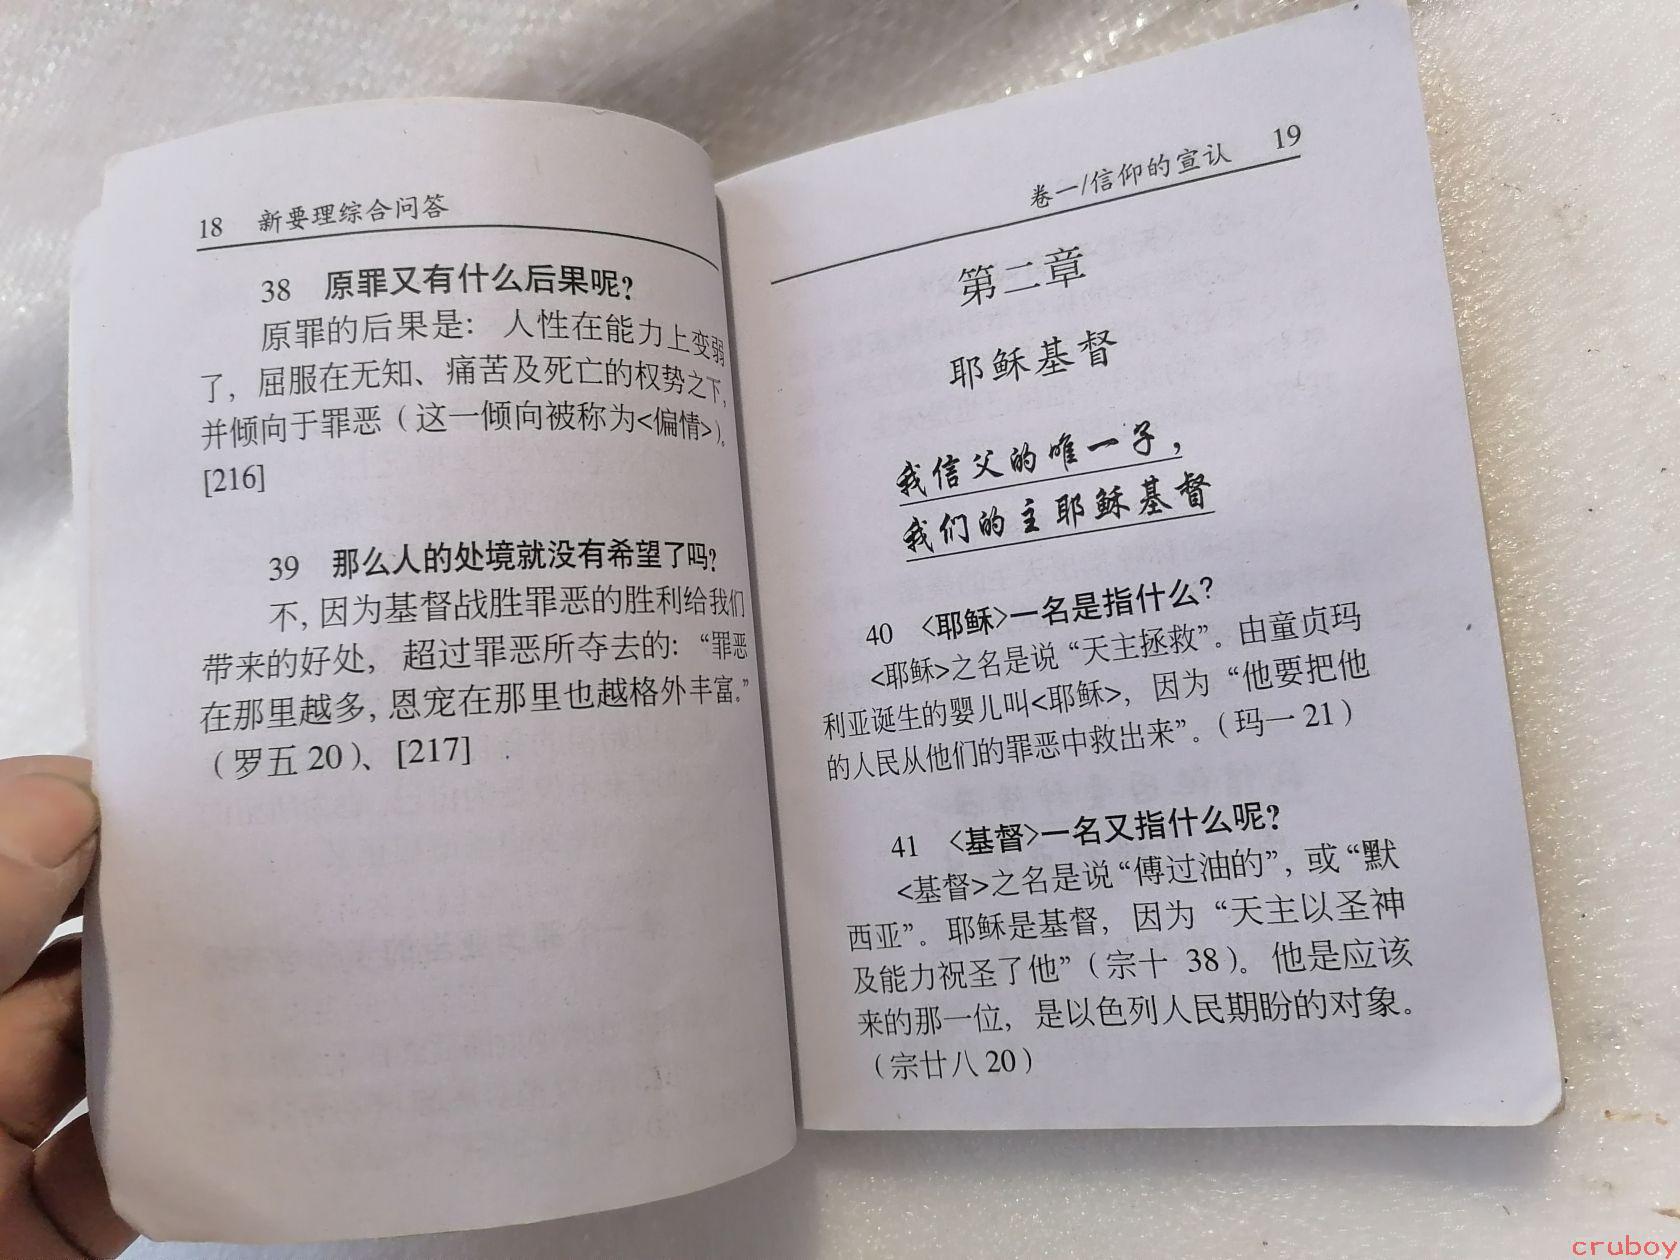 18 新要理综合问答
38 原罪又有什么后果呢?
原罪的后果是: 人性在能力上变弱
了, 屈服在无知、痛苦及死亡的权势之下,
并倾向于罪恶 (这一倾向被称为<偏情>)。
[216]
39 那么人的处境就没有希望了吗?
不, 因为基督战胜罪恶的胜利给我们
带来的好处, 超过罪恶所夺去的: “罪恶
在那里越多, 恩宠在那里也越格外丰富。”
(罗五 20)、[217]
卷一/信仰的宣认 19
第二章
耶稣基督
我信父的唯一子,
我们的主耶稣基督
40 <耶稣>一名是指什么?
<耶稣>之名是说 “天主拯救”。由童贞玛
利亚诞生的婴儿叫<耶稣>, 因为 “他要把他
的人民从他们的罪恶中救出来”。(玛一 21)
41 <基督>一名又指什么呢?
<基督>之名是说“傅过油的”, 或 “默
西亚”。耶稣是基督, 因为 “天主以圣神
及能力祝圣了他” (宗十 38)。他是应该
来的那一位, 是以色列人民期盼的对象。
(宗廿八 20)
cruboy